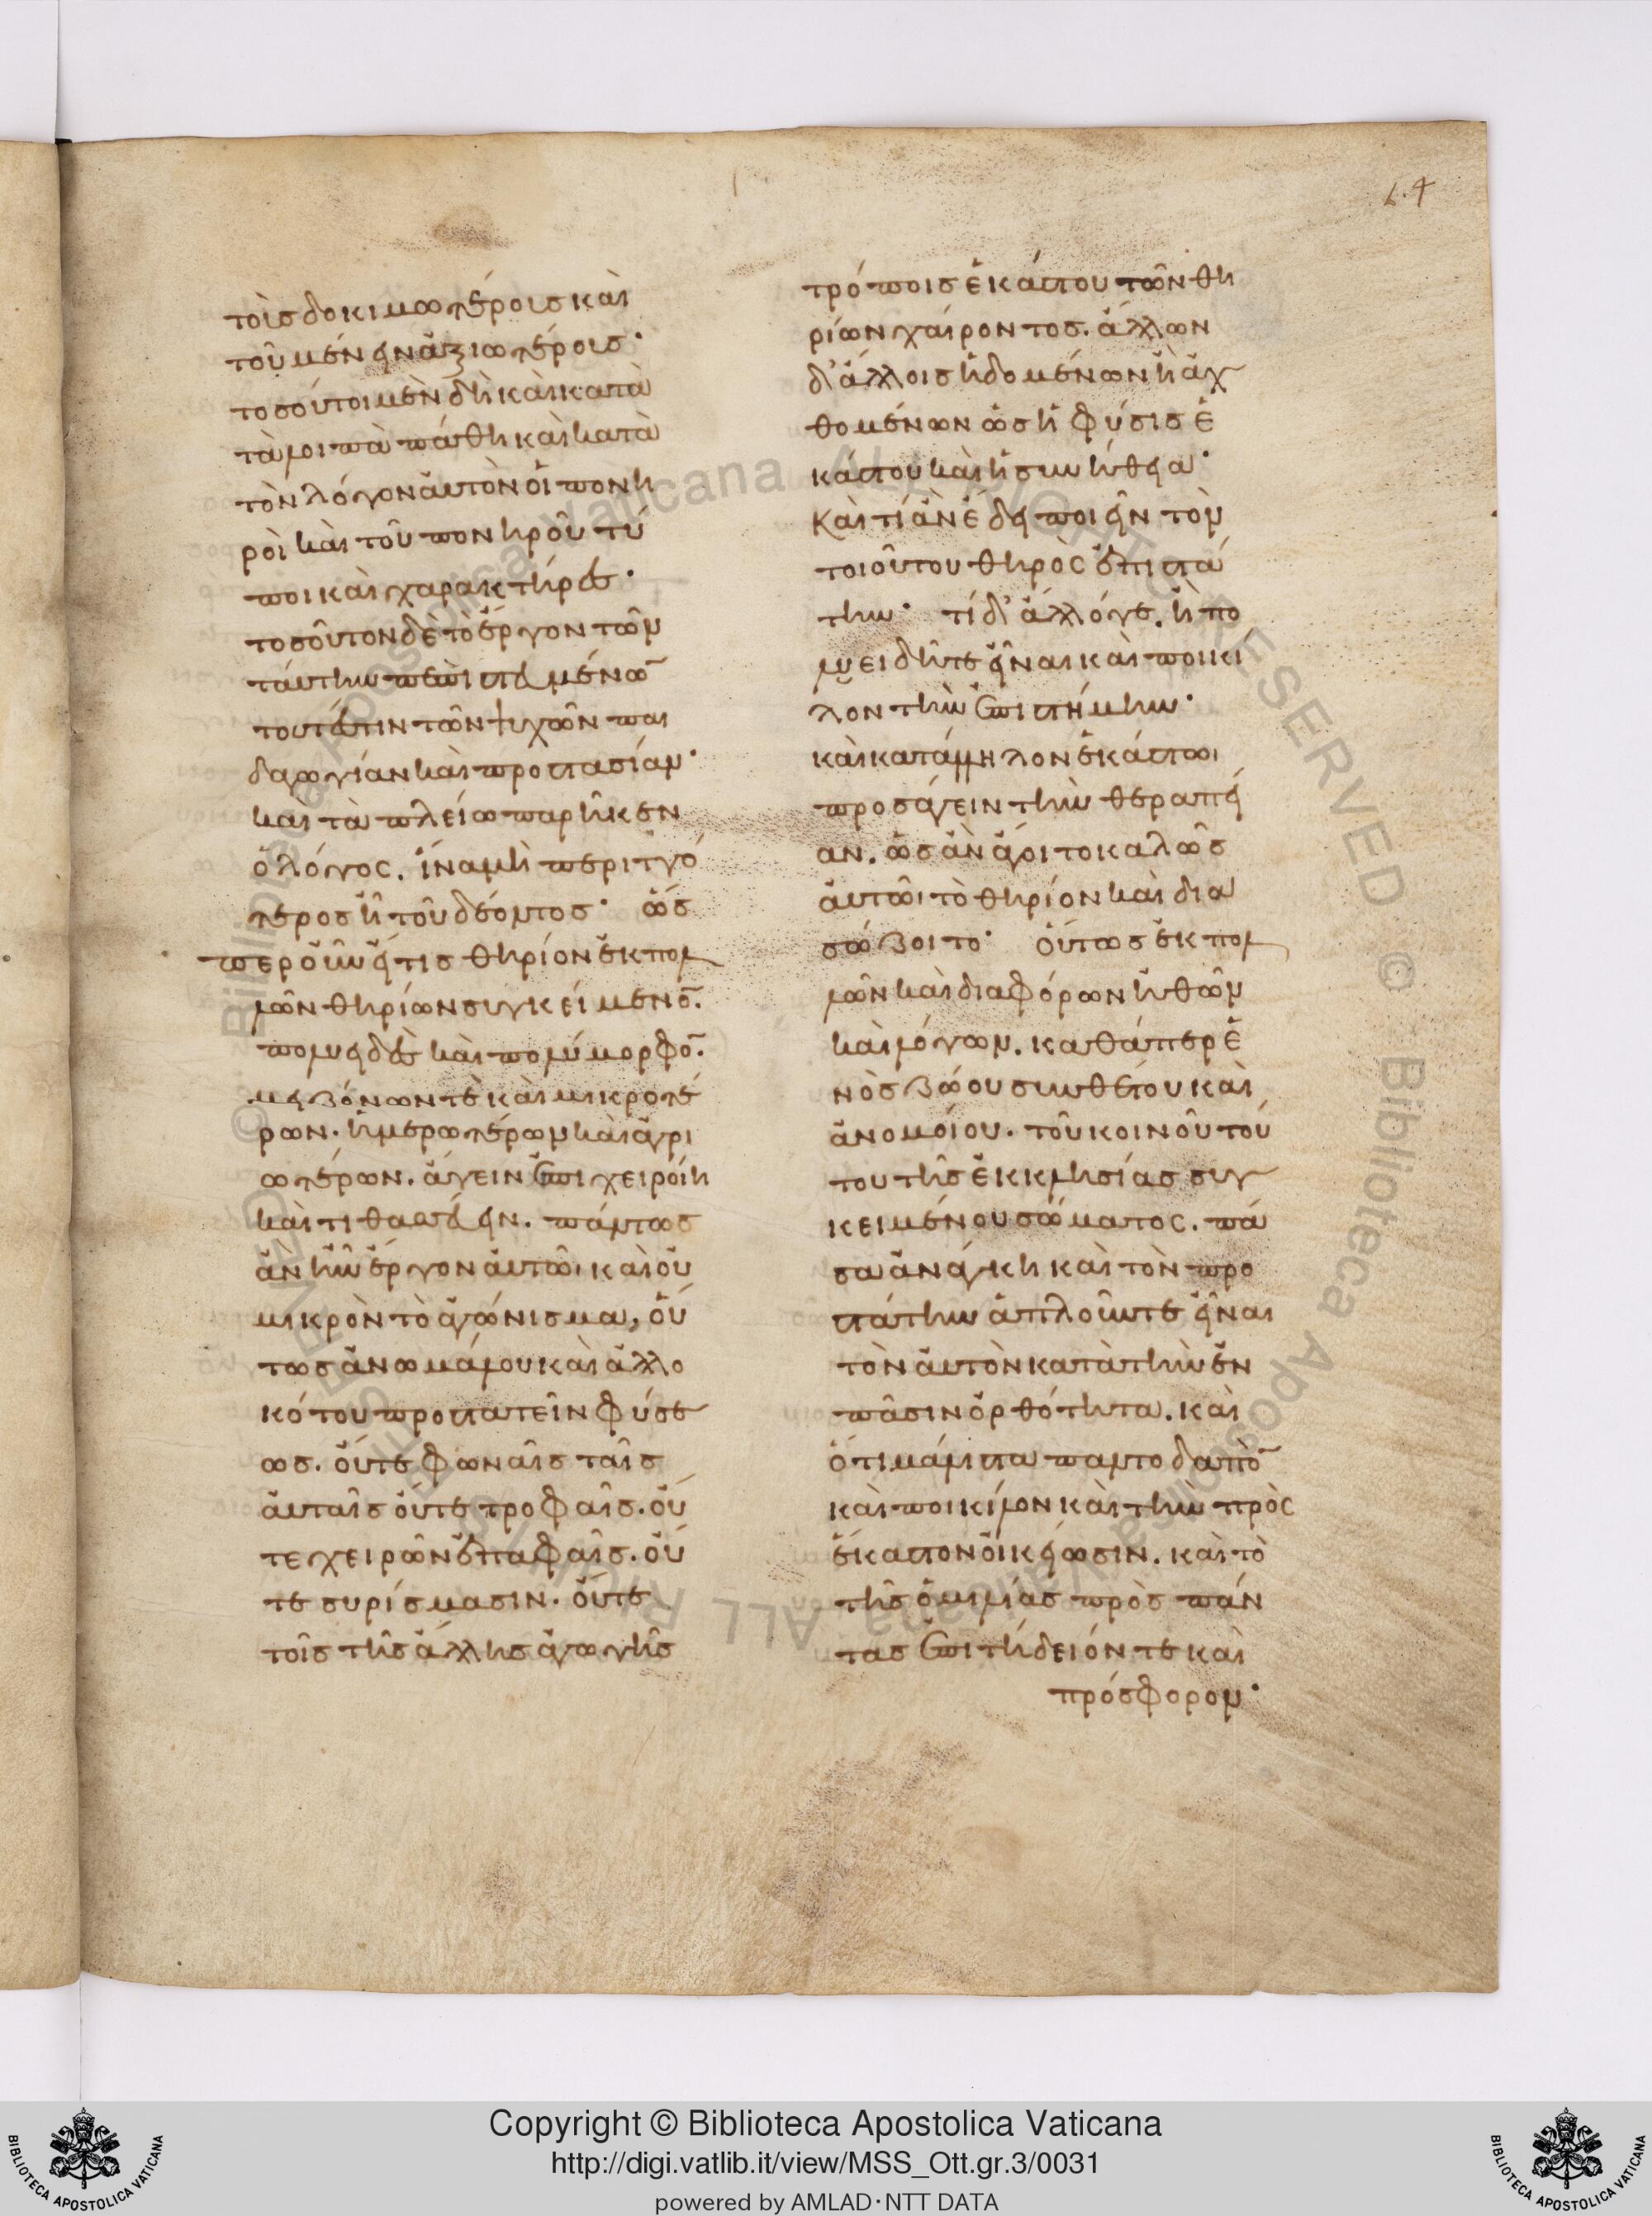 L.4
τοῖς δοκιμωτέροις καὶ
τοῦ μένειν ἀξιωτέροις·
τοσοῦτοι μὲν δὴ καὶ κατὰ
τὰ λοιπὰ πάθη καὶ κατὰ
τὸν λόγον αὐτὸν οἱ πονη
ροὶ καὶ τοῦ πονηροῦ τύ
ποι καὶ χαρακτῆρες·
τοσοῦτον δὲ τὸ ἔργον τῶν
ταύτην πεπιστευμένων
τουτέστιν τῶν ψυχῶν παι
δαγωγίαν καὶ προστασίαν·
καὶ τὰ πλείω παρῆκεν
ὁ λόγος. ἵνα μὴ περιττό
τερος ᾖ τοῦ δέοντος· ὥς
περ οὖν εἴ τις θηρίον ἐκ πολ
λῶν θηρίων συγκείμενον.
πολυειδὲς καὶ πολύμορφον.
μειζόνων τὲ καὶ μικροτέ
ρων. ἡμερωτέρων καὶ ἀγρι
ωτέρων. ἄγειν ἐπιχειροίη
καὶ τιθασεύειν. πάντως
ἂν ἦν ἔργον αὐτῶι καὶ οὐ
μικρὸν τὸ ἀγώνισμα, οὕ
τως ἀνωμάλου καὶ ἀλλο
κότου προστατεῖν φύσε
ως. οὔτε φωναῖς ταῖς
αὐταῖς οὔτε τροφαῖς. οὔ
τε χειρῶν ἐπαφαῖς. οὔ
τε συρίσμασιν. οὔτε
τοῖς τῆς ἄλλης ἀγωγῆς
τρόποις ἑκάστου τῶν θη
ρίων χαίροντος. ἄλλων
δ' ἄλλοις ἡδομένων ἢ ἀχ
θομένων ὡς ἡ φύσις ἑ
κάστου καὶ ἡ συνήθεια·
καὶ τί ἂν ἔδει ποιεῖν τὸν
τοιούτου θηρὸς ἐπιστά
την· τί δ' ἄλλό γε. ἢ πο
λυειδῆ τε εἶναι καὶ ποικί
λον τὴν ἐπιστήμην·
καὶ κατάλληλον ἑκάστωι
προσάγειν τὴν θεραπεί
αν. ὡς ἂν ἄγοιτο καλῶς
αὐτῶι τὸ θηρίον καὶ δια
σώζοιτο· οὕτως ἐκ πολ
λῶν καὶ διαφόρων ἠθῶν
καὶ λόγων. καθάπερ ἑ
νὸς ζώου συνθέτου καὶ
ἀνομοίου. τοῦ κοινοῦ τού
του τῆς ἐκκλησίας συγ
κειμένου σώματος. πᾶ
σα ἀνάγκη καὶ τὸν προ
στάτην ἁπλοῦν τε εἶναι
τὸν αὐτὸν κατὰ τὴν ἐν
πᾶσιν ὀρθότητα. καὶ
ὅτι μάλιστα παντοδαπὸν
καὶ ποικίλον κατὰ τὴν πρὸς
ἕκαστον οἰκείωσιν. καὶ τὸ
τῆς ὁμιλίας πρὸς πάν
τας ἐπιτήδειόν τε καὶ
πρόσφορον·
Copyright © Biblioteca Apostolica Vaticana
http://digi.vatlib.it/view/MSS_Ott.gr.3/0031
powered by AMLAD·NTT DATA
BIBLIOTECA APOSTOLICA VATICANA
BIBLIOTECA APOSTOLICA VATICANA